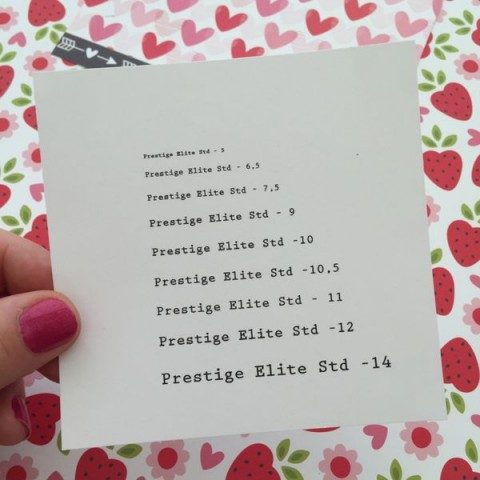 Prestige Elite Std - 5
Prestige Elite Std - 6,5
Prestige Elite Std - 7,5
Prestige Elite Std - 9
Prestige Elite Std -10
Prestige Elite Std -10,5
Prestige Elite Std - 11
Prestige Elite Std -12
Prestige Elite Std -14